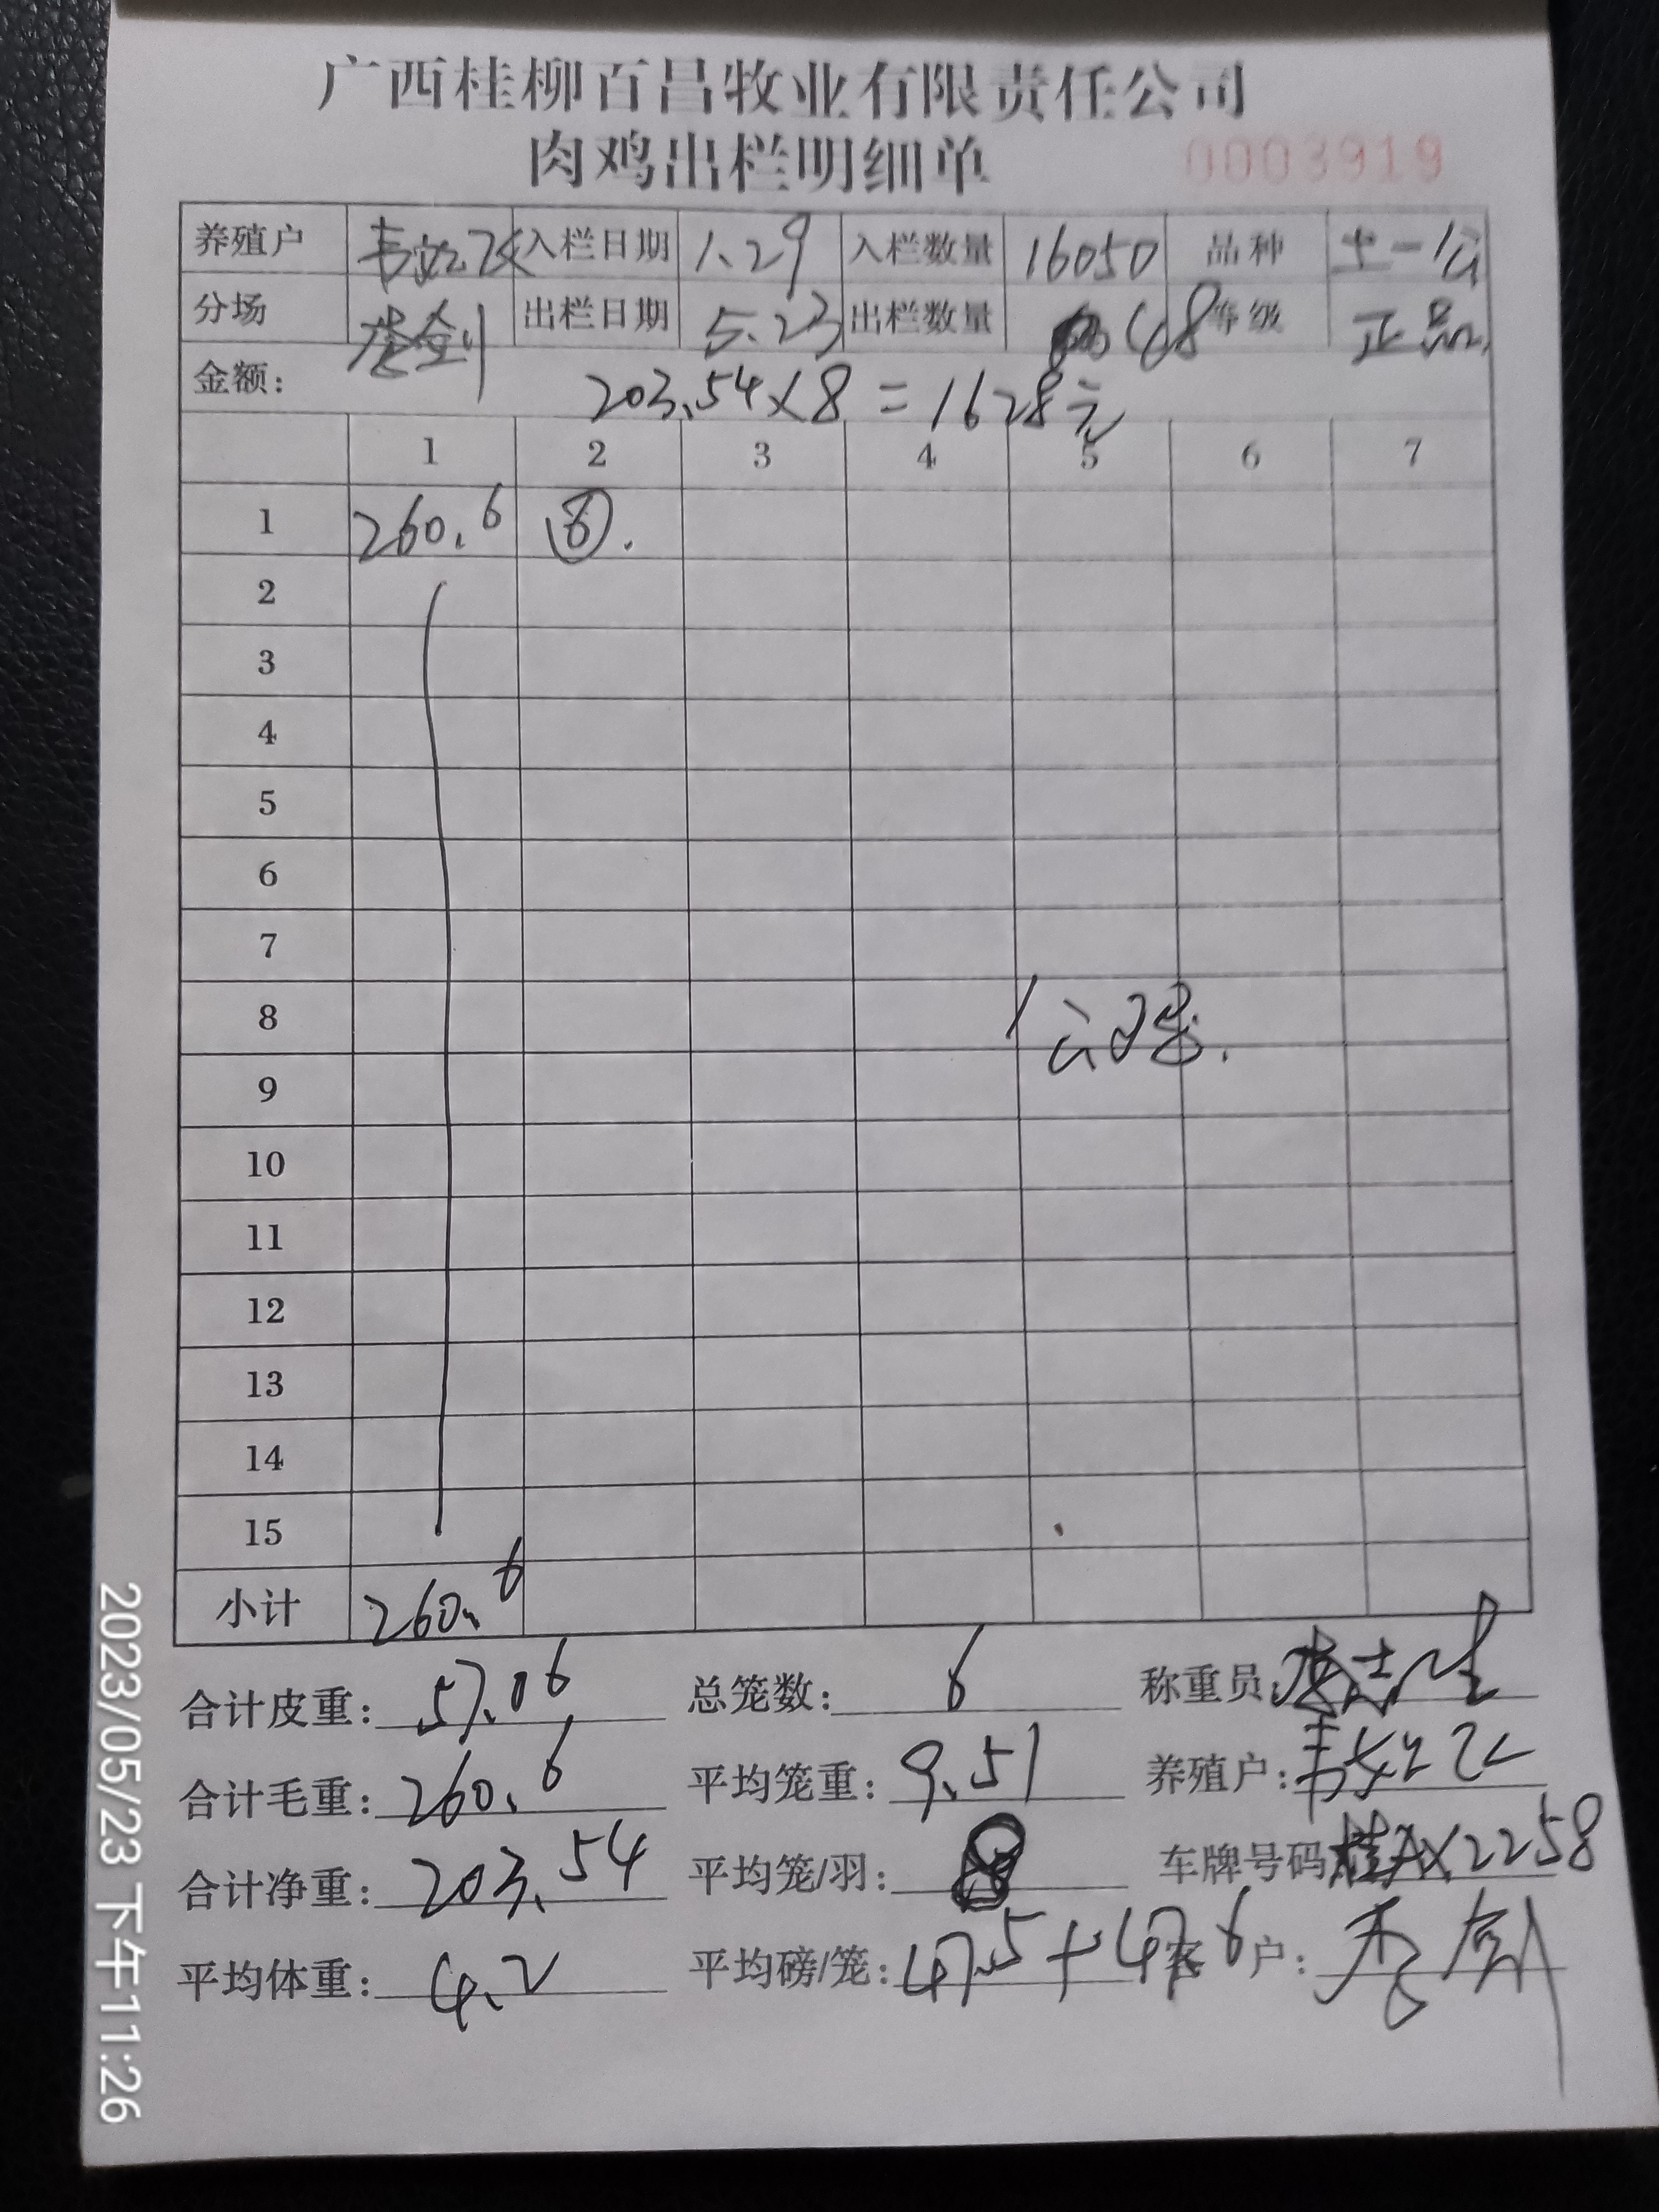 广西桂柳百昌牧业有限责任公司
肉鸡出栏明细单 0003919
养殖户 入栏日期 1.29 入栏数量 16050 品种 土一公
分场 出栏日期 5.23 出栏数量 48 等级 正品
金额: 203.54×8=1628元
1 2 3 4 5 6 7
1 260.6 ⑥.
2
3
4
5
6
7
8
9
10
11
12
13
14
15
小计 260.6
合计皮重: 57.06 总笼数: 6 称重员:
合计毛重: 260.6 平均笼重: 9.51 养殖户:
合计净重: 203.54 平均笼/羽: 8 车牌号码 桂AX2258
平均体重: 4.2 平均磅/笼: 47.5+47.6 客户:
2023/05/23 下午11:26